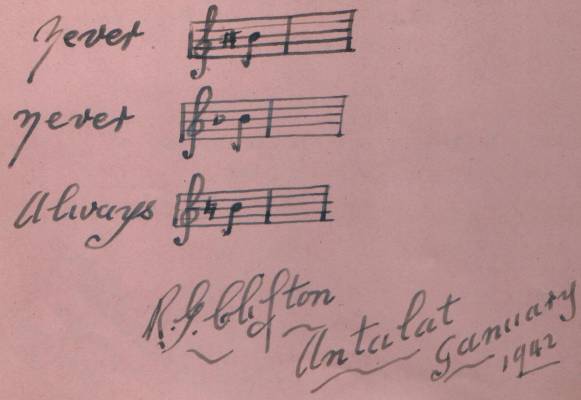 Never
Never
Always
R.G. Clifton
Antalat
January
1942